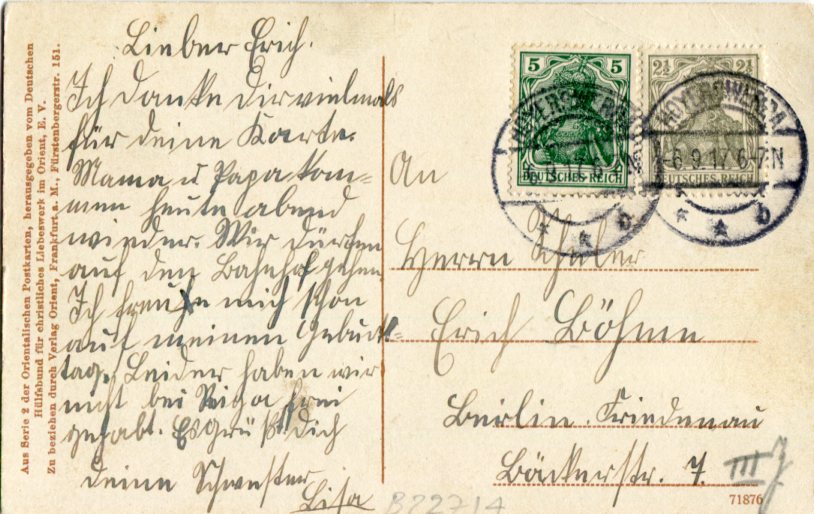 Aus Serie 2 der Orientalischen Postkarten, herausgegeben vom Deutschen
Hülfsbund für christliches Liebeswerk im Orient, E. V.
Zu beziehen durch Verlag Orient, Frankfurt a. M., Fürstenbergerstr. 151.
Lieber Erich.
Ich danke Dir vielmals
für deine Karte.
Mama u Papa kom-
men heute abend
wieder. Wir dürfen
auf den Bahnhof gehen.
Ich freuhe mich schon
auf meinen Geburts-
tag. Leider haben wir
nicht bei Riga frei
gehabt. Es grüßt dich
deine Schwester
Lisa
5 5
DEUTSCHES REICH
2½ 2½
DEUTSCHES REICH
HOYERSWERDA
HOYERSWERDA
-6.9.17.6-7N
* * b
* * b
An
Herrn Schüler
Erich Böhme
Berlin Friedenau
Bäckerstr. 7.
III
71876
B22714